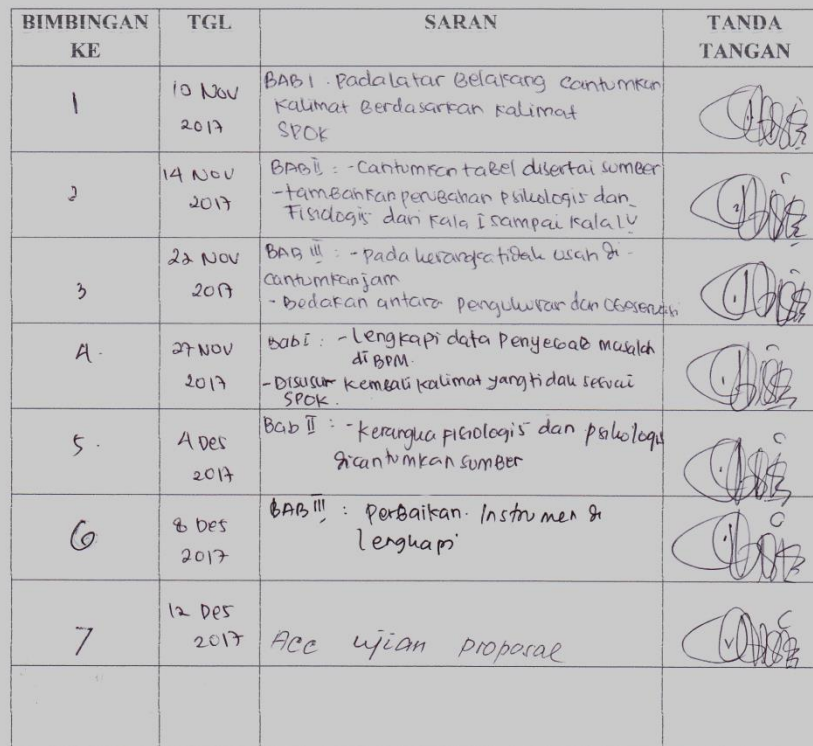 BIMBINGAN KE TGL SARAN TANDA TANGAN
1 10 Nov 2017
BAB I . Pada latar Belakang Cantumkan
Kalimat Berdasarkan kalimat
SPOK
2 14 Nov 2017
BAB II : - Cantumkan tabel disertai sumber
- tambahkan perubahan psikologis dan
Fisiologis dari kala I sampai kala IV
3 22 Nov 2017
BAB III : - pada kerangka tidak usah di
cantumkan jam
- Bedakan antara pengukuran dan Observasi
4. 27 NOV 2017
Bab I : - Lengkapi data penyebab masalah
di BPM.
- Disusun kembali kalimat yang tidak sesuai
SPOK.
5. 4 Des 2017
Bab II : - kerangka fisiologis dan psikologis
dicantumkan sumber
6 8 Des 2017
BAB III : Perbaikan. Instrumen di
lengkapi
7 12 Des 2017
Acc ujian proposal